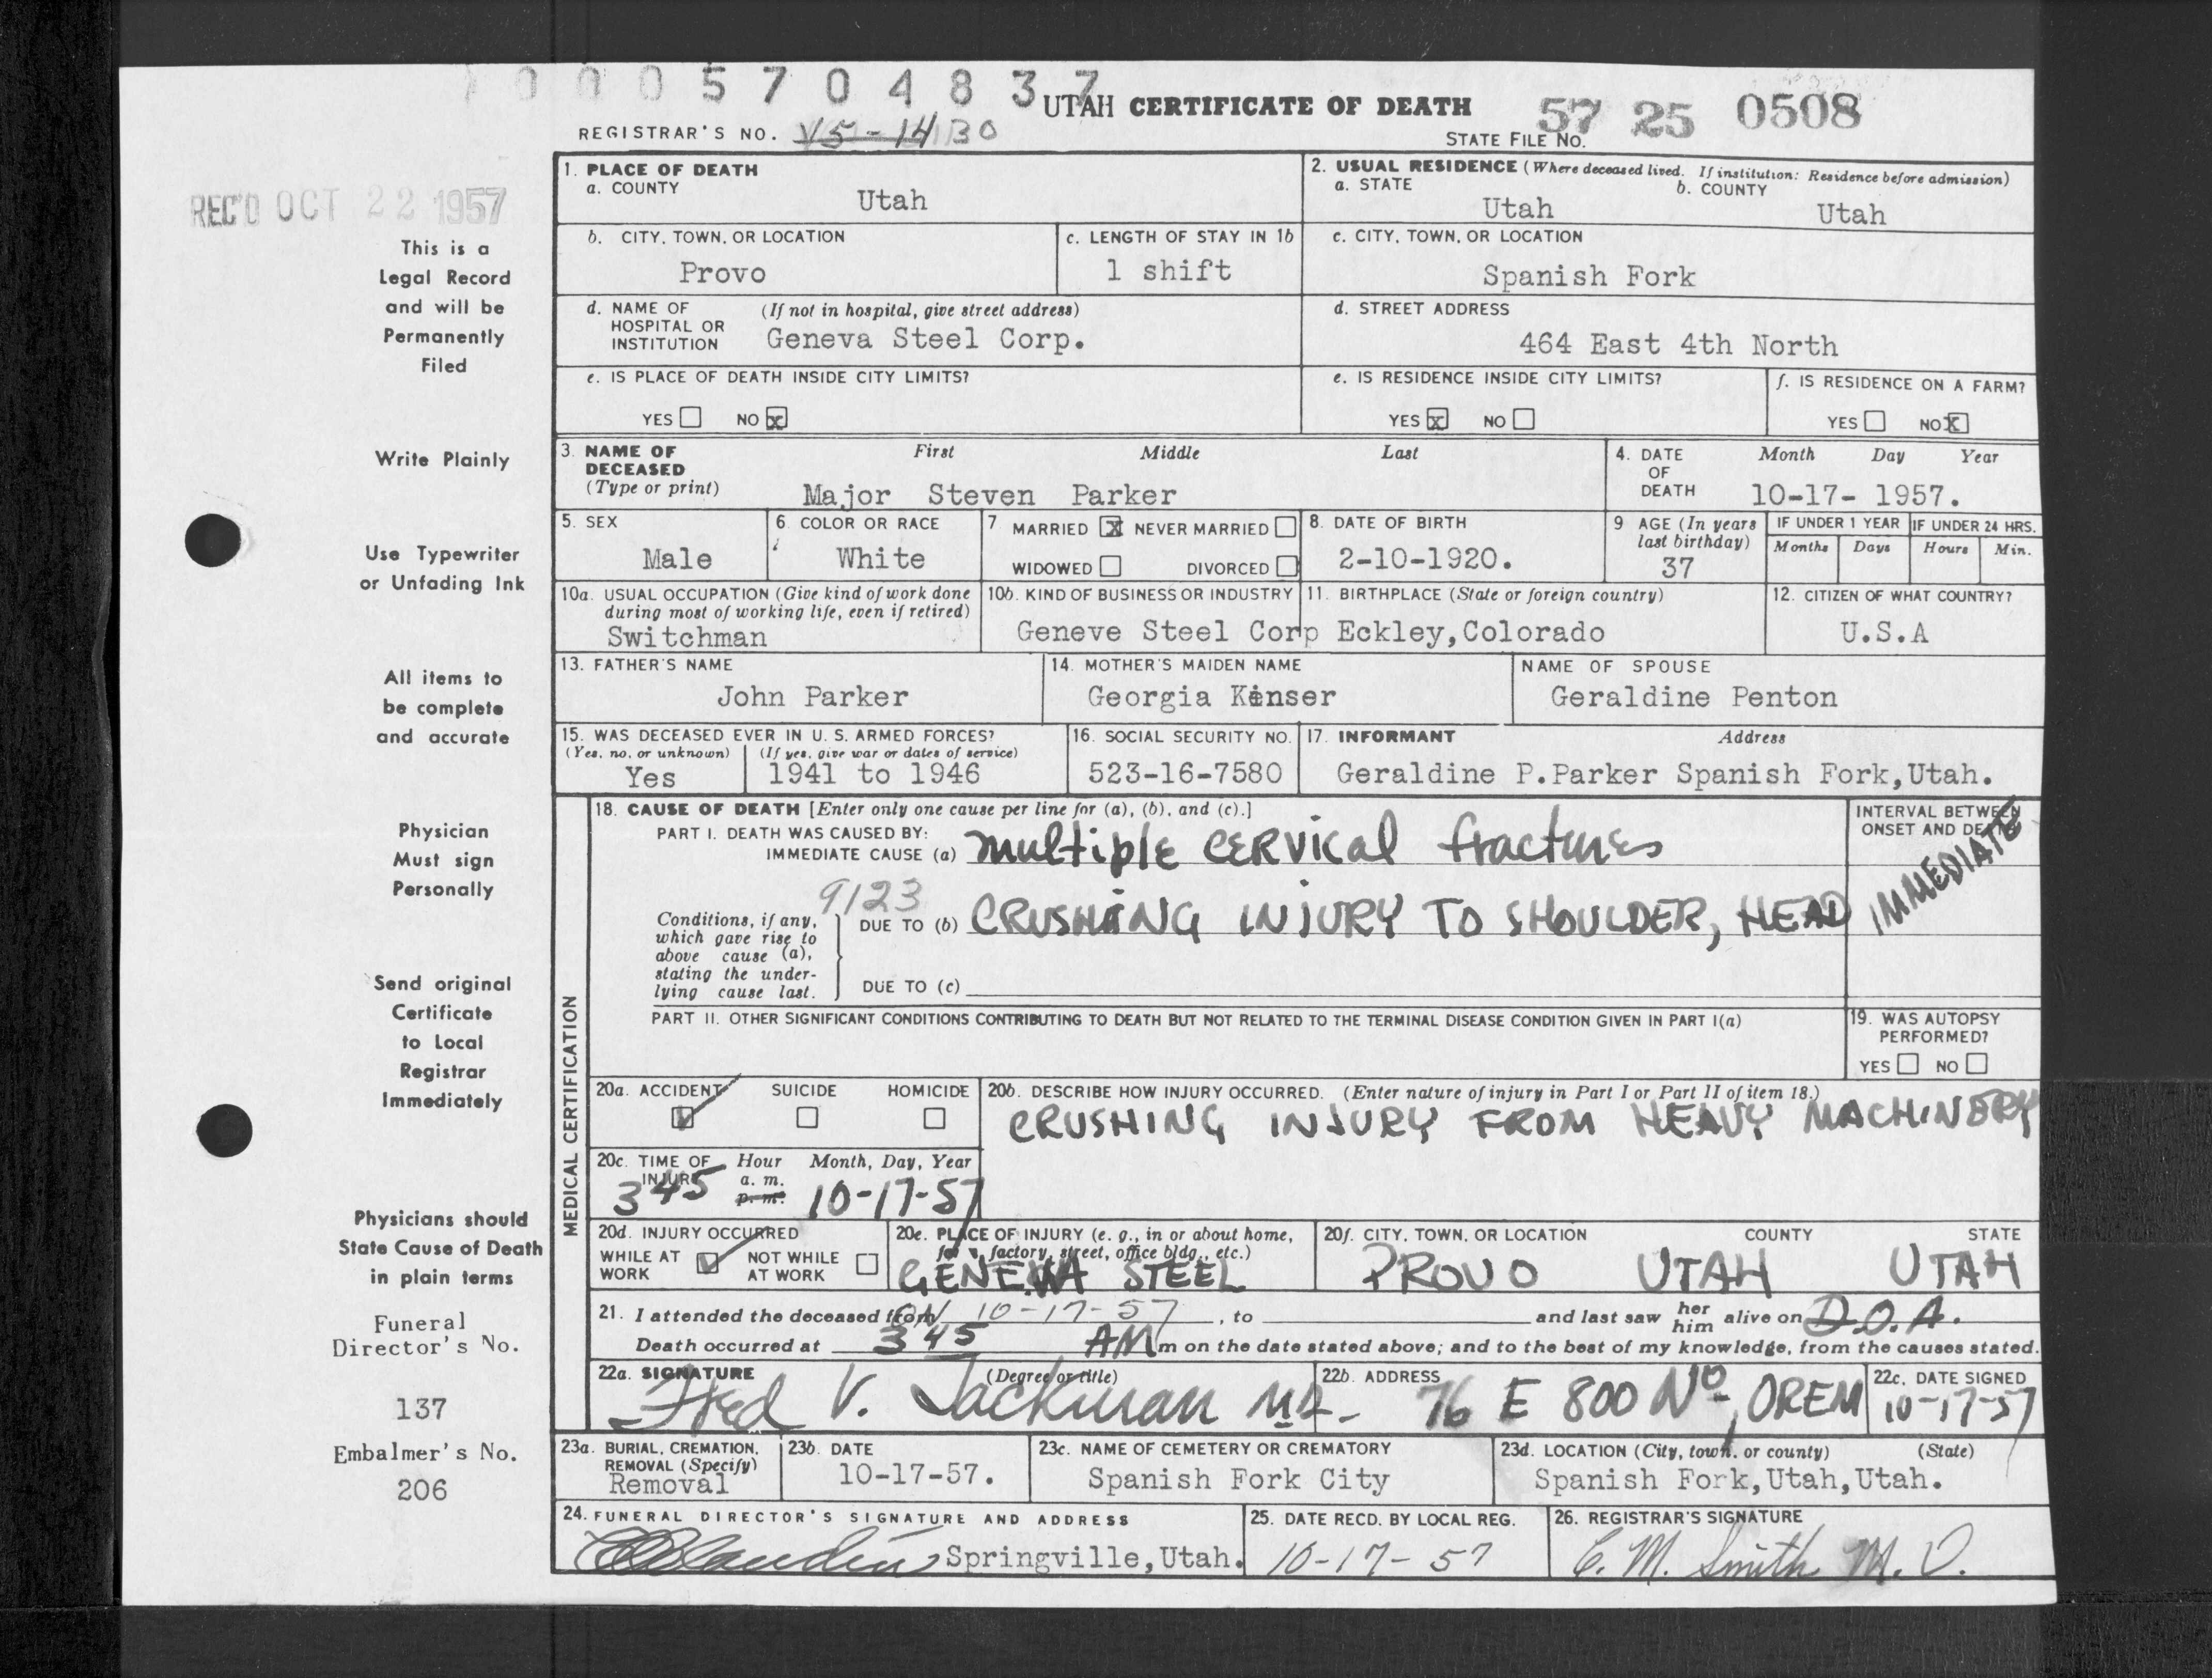 0 0 0 5 7 0 4 8 3 7
UTAH CERTIFICATE OF DEATH
57 25 0508
REGISTRAR'S NO. V5-14130
STATE FILE NO.
REC'D OCT 22 1957
This is a
Legal Record
and will be
Permanently
Filed
Write Plainly
Use Typewriter
or Unfading Ink
All items to
be complete
and accurate
Physician
Must sign
Personally
Send original
Certificate
to Local
Registrar
Immediately
Physicians should
State Cause of Death
in plain terms
Funeral
Director's No.
137
Embalmer's No.
206
1. PLACE OF DEATH
a. COUNTY
Utah
2. USUAL RESIDENCE (Where deceased lived. If institution: Residence before admission)
a. STATE
Utah
b. COUNTY
Utah
b. CITY, TOWN, OR LOCATION
Provo
c. LENGTH OF STAY IN 1b
1 shift
c. CITY, TOWN, OR LOCATION
Spanish Fork
d. NAME OF HOSPITAL OR INSTITUTION
(If not in hospital, give street address)
Geneva Steel Corp.
d. STREET ADDRESS
464 East 4th North
e. IS PLACE OF DEATH INSIDE CITY LIMITS?
YES NO x
e. IS RESIDENCE INSIDE CITY LIMITS?
YES x NO
f. IS RESIDENCE ON A FARM?
YES NO X
3. NAME OF DECEASED
(Type or print)
First Middle Last
Major Steven Parker
4. DATE OF DEATH
Month Day Year
10-17- 1957.
5. SEX
Male
6. COLOR OR RACE
White
7 MARRIED X NEVER MARRIED
WIDOWED DIVORCED
8. DATE OF BIRTH
2-10-1920.
9 AGE (In years last birthday)
37
IF UNDER 1 YEAR
Months Days
IF UNDER 24 HRS.
Hours Min.
10a. USUAL OCCUPATION (Give kind of work done during most of working life, even if retired)
Switchman
10b. KIND OF BUSINESS OR INDUSTRY
Geneve Steel Corp
11. BIRTHPLACE (State or foreign country)
Eckley,Colorado
12. CITIZEN OF WHAT COUNTRY?
U.S.A
13. FATHER'S NAME
John Parker
14. MOTHER'S MAIDEN NAME
Georgia Kinser
NAME OF SPOUSE
Geraldine Penton
15. WAS DECEASED EVER IN U. S. ARMED FORCES?
(Yes, no, or unknown) (If yes, give war or dates of service)
Yes 1941 to 1946
16. SOCIAL SECURITY NO.
523-16-7580
17. INFORMANT Address
Geraldine P.Parker Spanish Fork,Utah.
MEDICAL CERTIFICATION
18. CAUSE OF DEATH [Enter only one cause per line for (a), (b), and (c).]
PART I. DEATH WAS CAUSED BY:
IMMEDIATE CAUSE (a) multiple CERVICAL fractures
INTERVAL BETWEEN ONSET AND DEATH
IMMEDIATE
9123
Conditions, if any, which gave rise to above cause (a), stating the under-lying cause last.
DUE TO (b) CRUSHING INJURY TO SHOULDER, HEAD
DUE TO (c)
PART II. OTHER SIGNIFICANT CONDITIONS CONTRIBUTING TO DEATH BUT NOT RELATED TO THE TERMINAL DISEASE CONDITION GIVEN IN PART I(a)
19. WAS AUTOPSY PERFORMED?
YES NO
20a. ACCIDENT SUICIDE HOMICIDE
20b. DESCRIBE HOW INJURY OCCURRED. (Enter nature of injury in Part I or Part II of item 18.)
CRUSHING INJURY FROM HEAVY MACHINERY
20c. TIME OF INJURY Hour Month, Day, Year
3 45 a. m. p. m. 10-17-57
20d. INJURY OCCURRED
WHILE AT WORK NOT WHILE AT WORK
20e. PLACE OF INJURY (e. g., in or about home, farm, factory, street, office bldg., etc.)
GENEVA STEEL
20f. CITY, TOWN, OR LOCATION COUNTY STATE
PROVO UTAH UTAH
21. I attended the deceased from ON 10-17-57, to and last saw her him alive on D.O.A.
Death occurred at 3 45 AM m on the date stated above; and to the best of my knowledge, from the causes stated.
22a. SIGNATURE (Degree or title)
Fred V. Jackman MD
22b. ADDRESS
76 E 800 No, OREM
22c. DATE SIGNED
10-17-57
23a. BURIAL, CREMATION, REMOVAL (Specify)
Removal
23b. DATE
10-17-57.
23c. NAME OF CEMETERY OR CREMATORY
Spanish Fork City
23d. LOCATION (City, town, or county) (State)
Spanish Fork,Utah,Utah.
24. FUNERAL DIRECTOR'S SIGNATURE AND ADDRESS
Springville,Utah.
25. DATE RECD. BY LOCAL REG.
10-17-57
26. REGISTRAR'S SIGNATURE
C. M. Smith M.D.